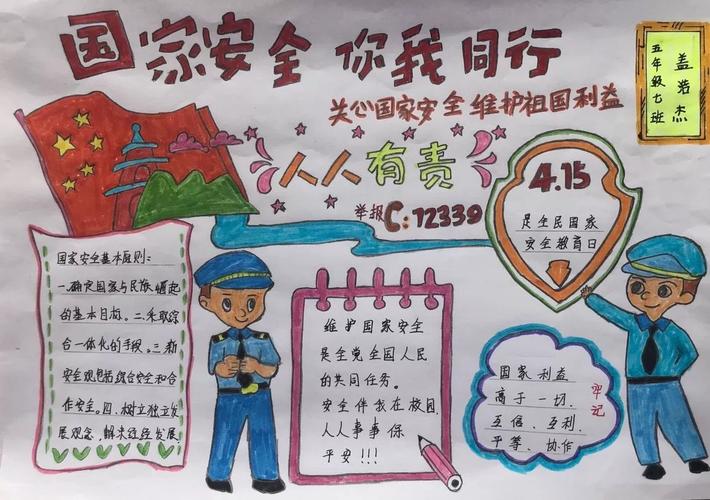 国家安全 你我同行
关心国家安全 维护祖国利益
五年级七班
盖浩杰
人人有责
举报C:12339
4.15
是全民国家
安全教育日
国家安全基本原则:
一.确定国家与民族崛起
的基本目标。二.采取综
合一体化的手段。三.新
安全观包括综合安全和合
作安全。四.树立独立发
展观念,解决经济发展
维护国家安全
是全党全国人民
的共同任务。
安全伴我在校园,
人人事事保
平安!!!
国家利益
高于一切.
互信、互利、
平等、协作
牢记